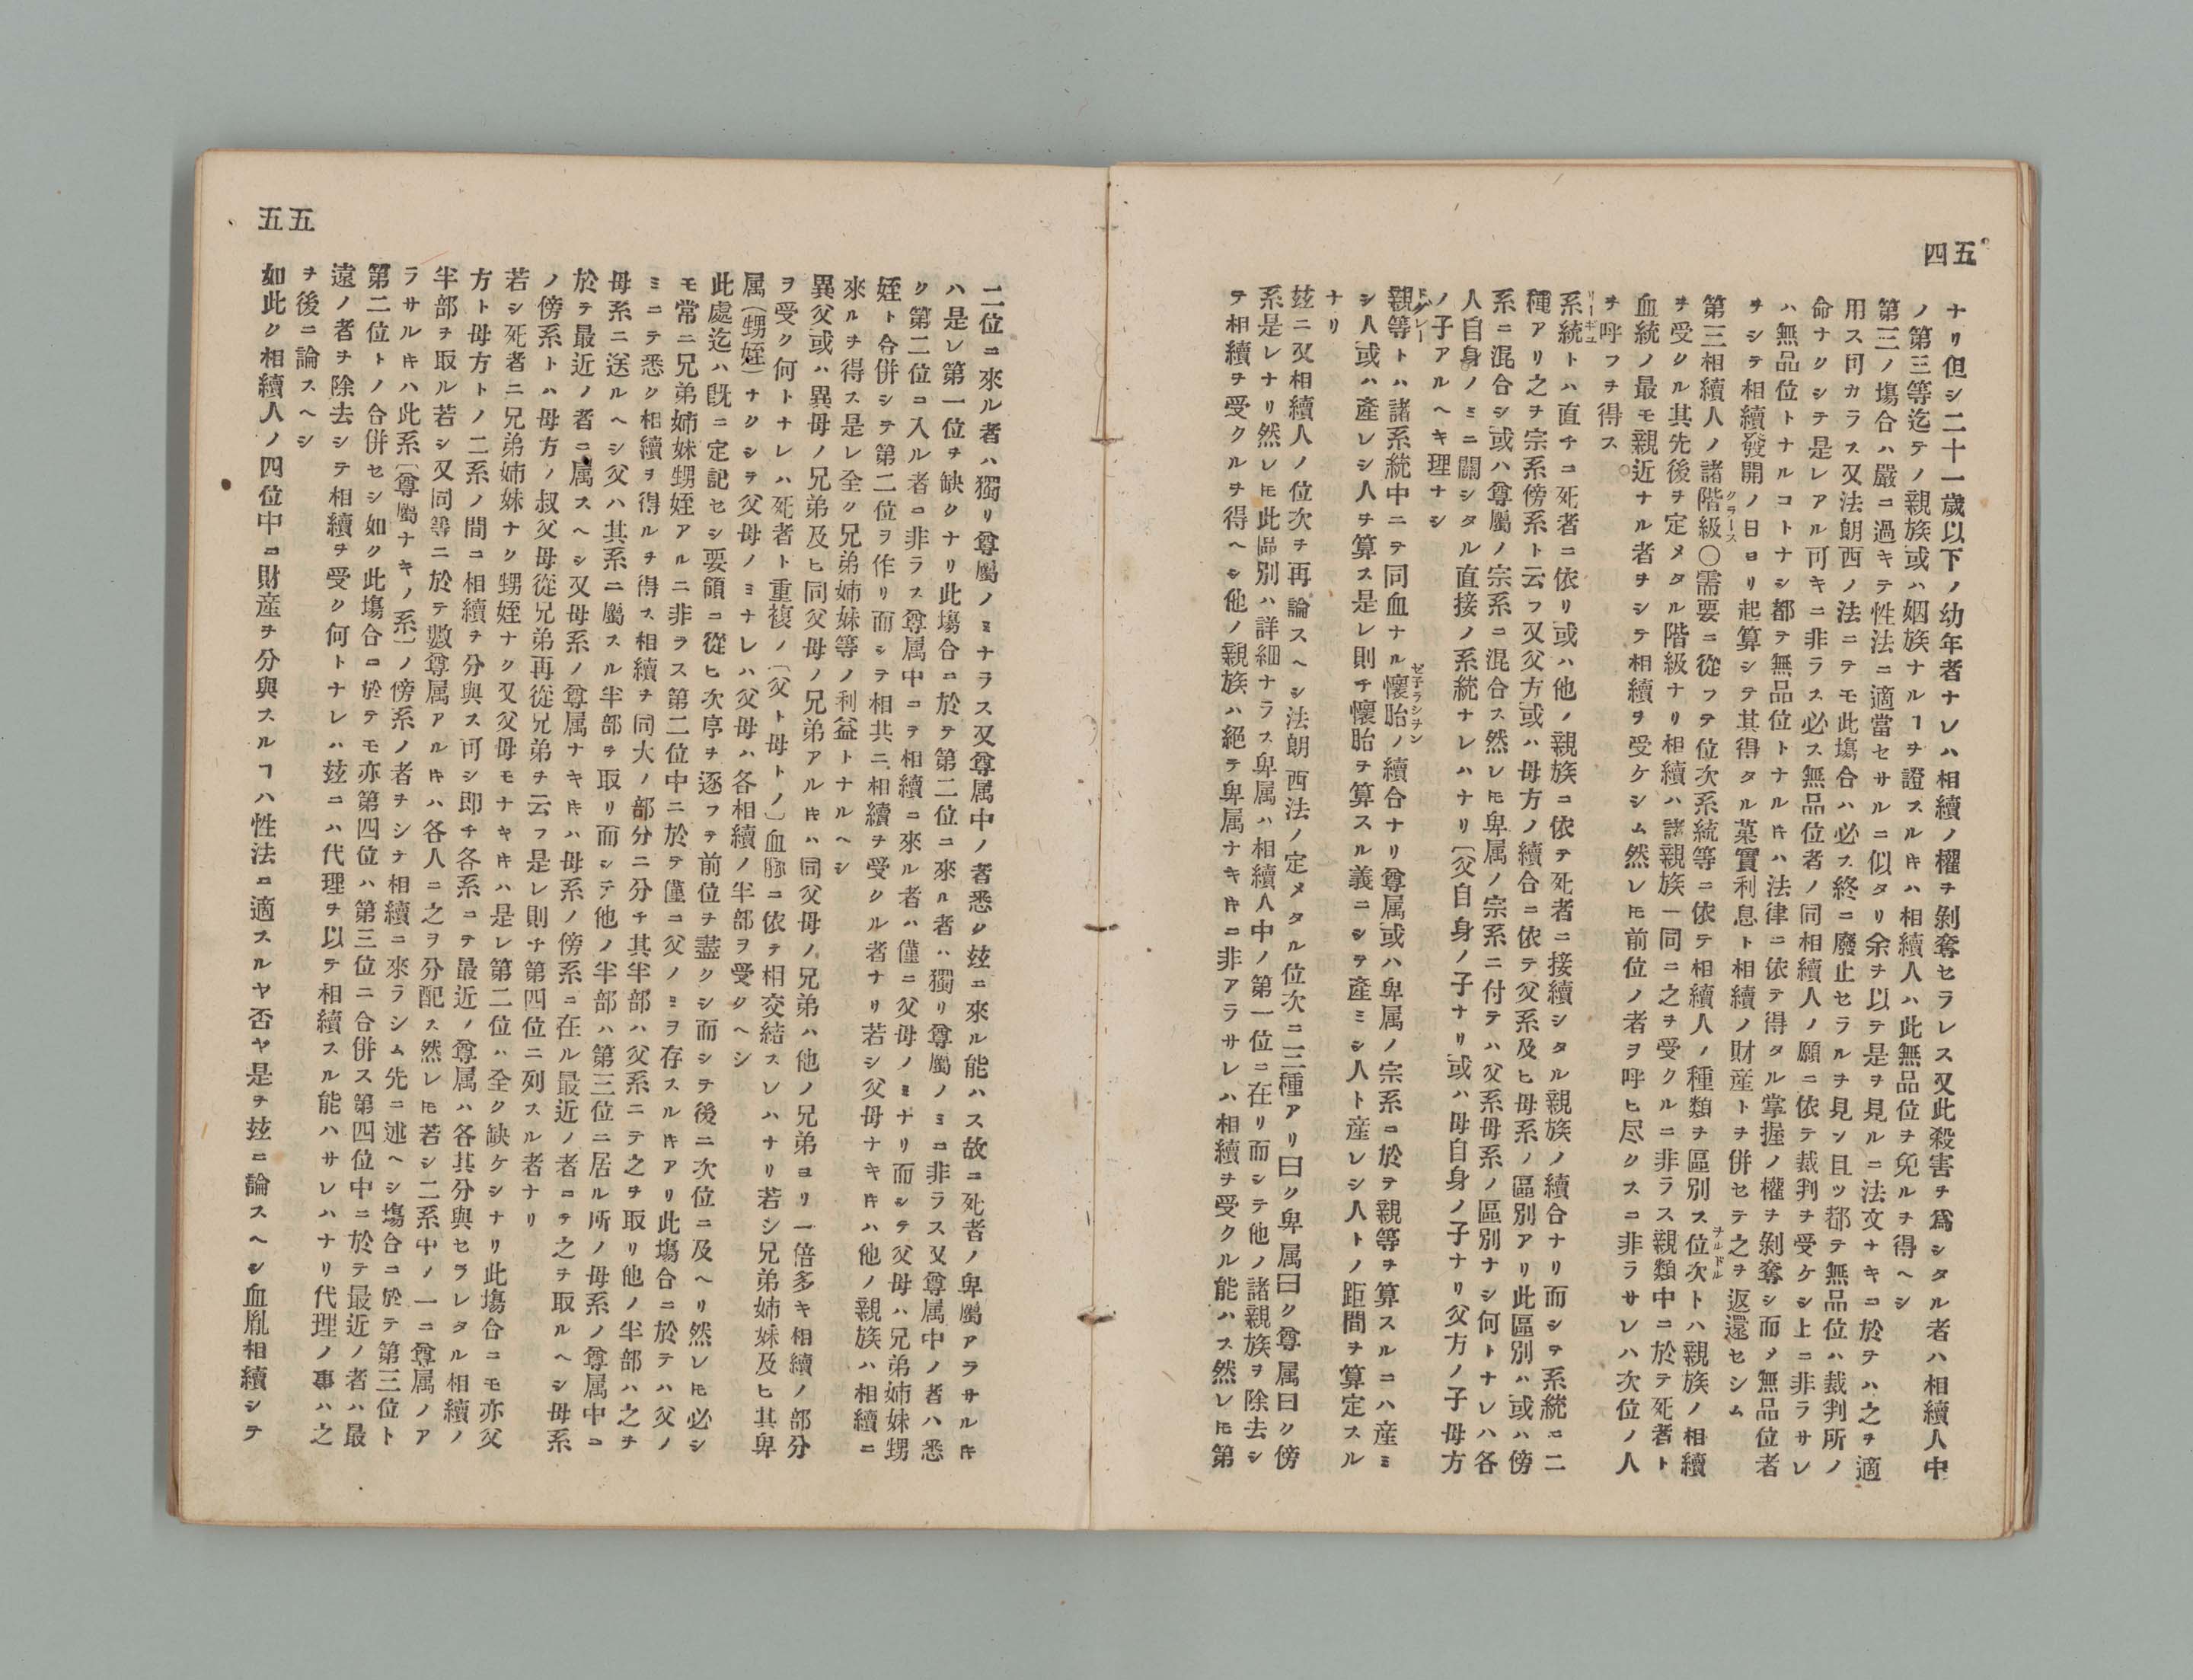 五四
ナリ但シ二十一歳以下ノ幼年者ナレハ相續ノ權ヲ剝奪セラレス又此殺害ヲ爲シタル者ハ相續人中
ノ第三等迄テノ親族或ハ姻族ナルヿヲ證スルキハ相續人ハ此無品位ヲ免ルヲ得ヘシ
第三ノ塲合ハ嚴ニ過キテ性法ニ適當セサルニ似タリ余ヲ以テ是ヲ見ルニ法文ナキニ於テハ之ヲ適
用ス可カラス又法朗西ノ法ニテモ此塲合ハ必ス終ニ廢止セラルヲ見ン且ツ都テ無品位ハ裁判所ノ
命ナクシテ是レアル可キニ非ラス必ス無品位者ノ同相續人ノ願ニ依テ裁判ヲ受ケシ上ニ非ラサレ
ハ無品位トナルコトナシ都テ無品位トナルキハ法律ニ依テ得タル掌握ノ權ヲ剝奪シ而メ無品位者
ヲシテ相續發開ノ日ヨリ起算シテ其得タル菓實利息ト相續ノ財産トヲ併セテ之ヲ返還セシム
第三相續人ノ諸階級〇需要ニ從フテ位次系統等ニ依テ相續人ノ種類ヲ區別ス位次トハ親族ノ相續
クラース
ヲルドル
ヲ受クル其先後ヲ定メタル階級ナリ相續ハ諸親族一同ニ之ヲ受クルニ非ラス親類中ニ於テ死者ト
血統ノ最モ親近ナル者ヲシテ相續ヲ受ケシム然レ𪜈前位ノ者ヲ呼ヒ尽クスニ非ラサレハ次位ノ人
ヲ呼フヲ得ス
系統トハ直チニ死者ニ依リ或ハ他ノ親族ニ依テ死者ニ接續シタル親族ノ續合ナリ而シテ系統ニ二
リーギュ
種アリ之ヲ宗系傍系ト云フ又父方或ハ母方ノ續合ニ依テ父系及ヒ母系ノ區別アリ此區別ハ或ハ傍
系ニ混合シ或ハ尊屬ノ宗系ニ混合ス然レ𪜈卑属ノ宗系ニ付テハ父系母系ノ區別ナシ何トナレハ各
人自身ノミニ關シタル直接ノ系統ナレハナリ〔父自身ノ子ナリ或ハ母自身ノ子ナリ父方ノ子母方
ノ子アルヘキ理ナシ
親等トハ諸系統中ニテ同血ナル懷胎ノ續合ナリ尊属或ハ卑属ノ宗系ニ於テ親等ヲ算スルニハ産ミ
シ人或ハ產レシ人ヲ算ス是レ則チ懷胎ヲ算スル義ニシテ產ミシ人ト産レシ人トノ距間ヲ算定スル
ナリ
玆ニ又相續人ノ位次ヲ再論スヘシ法朗西法ノ定メタル位次ニ三種アリ曰ク卑属曰ク尊属曰ク傍
系是レナリ然レ𪜈此區別ハ詳細ナラス卑属ハ相續人中ノ第一位ニ在リ而シテ他ノ諸親族ヲ除去シ
テ相續ヲ受クルヲ得ヘシ他ノ親族ハ絕テ卑属ナキキニ非アラサレハ相續ヲ受クル能ハス然レ𪜈第
五五
二位ニ來ル者ハ獨リ尊屬ノミナラス又尊属中ノ者悉ク玆ニ來ル能ハス故ニ死者ノ卑屬アラサルキ
ハ是レ第一位ヲ缺クナリ此塲合ニ於テ第二位ニ來ル者ハ獨リ尊屬ノミニ非ラス又尊属中ノ者ハ悉
ク第二位ニ入ル者ニ非ラス尊属中ニテ相續ニ來ル者ハ僅ニ父母ノミナリ而シテ父母ハ兄弟姉妹甥
姪ト合併シテ第二位ヲ作リ而シテ相共ニ相續ヲ受クル者ナリ若シ父母ナキキハ他ノ親族ハ相續ニ
來ルヲ得ス是レ全ク兄弟姉妹等ノ利益トナルヘシ
異父或ハ異母ノ兄弟及ヒ同父母ノ兄弟アルキハ同父母ノ兄弟ハ他ノ兄弟ヨリ一倍多キ相續ノ部分
ヲ受ク何トナレハ死者ト重複ノ〔父ト母トノ〕血脉ニ依テ相交結スレハナリ若シ兄弟姉妹及ヒ其卑
属〔甥姪〕ナクシテ父母ノミナレハ父母ハ各相續ノ半部ヲ受クヘシ
此處迄ハ旣ニ定記セシ要領ニ從ヒ次序ヲ逐フテ前位ヲ盡クシ而シテ後ニ次位ニ及ヘリ然レ𪜈必シ
モ常ニ兄弟姉妹甥姪アルニ非ラス第二位中ニ於テ僅ニ父ノミヲ存スルキアリ此塲合ニ於テハ父ノ
ミニテ悉ク相續ヲ得ルヲ得ス相續ヲ同大ノ部分ニ分チ其半部ハ父系ニテ之ヲ取リ他ノ半部ハ之ヲ
母系ニ送ルヘシ父ハ其系ニ屬スル半部ヲ取リ而シテ他ノ半部ハ第三位ニ居ル所ノ母系ノ尊属中ニ
於テ最近ノ者ニ属スヘシ又母系ノ尊属ナキキハ母系ノ傍系ニ在ル最近ノ者ニテ之ヲ取ルヘシ母系
ノ傍系トハ母方ノ叔父母從兄弟再從兄弟ヲ云フ是レ則チ第四位ニ列スル者ナリ
若シ死者ニ兄弟姉妹ナク甥姪ナク又父母モナキキハ是レ第二位ハ全ク缺ケシナリ此塲合ニモ亦父
方ト母方トノ二系ノ間ニ相續ヲ分與ス可シ即チ各系ニテ最近ノ尊属ハ各其分與セラレタル相續ノ
半部ヲ取ル若シ又同等ニ於テ數尊属アルキハ各人ニ之ヲ分配ス然レ𪜈若シ二系中ノ一ニ尊属ノア
ラサルキハ此系〔尊屬ナキノ系〕ノ傍系ノ者ヲシテ相續ニ來ラシム先ニ述ヘシ塲合ニ於テ第三位ト
第二位トノ合併セシ如ク此塲合ニ於テモ亦第四位ハ第三位ニ合併ス第四位中ニ於テ最近ノ者ハ最
遠ノ者ヲ除去シテ相續ヲ受ク何トナレハ玆ニハ代理ヲ以テ相續スル能ハサレハナリ代理ノ事ハ之
ヲ後ニ論スヘシ
如此ク相續人ノ四位中ニ財産ヲ分與スルヿハ性法ニ適スルヤ否ヤ是ヲ玆ニ論スヘシ血胤相續シテ